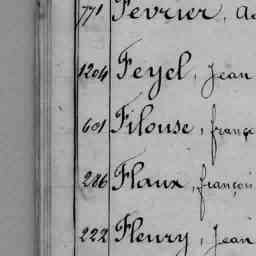 771 Fevrier, Ad
1204 Feyel, Jean
601 Filouse, franço
286 Flaux, françois
222 Fleury, Jean